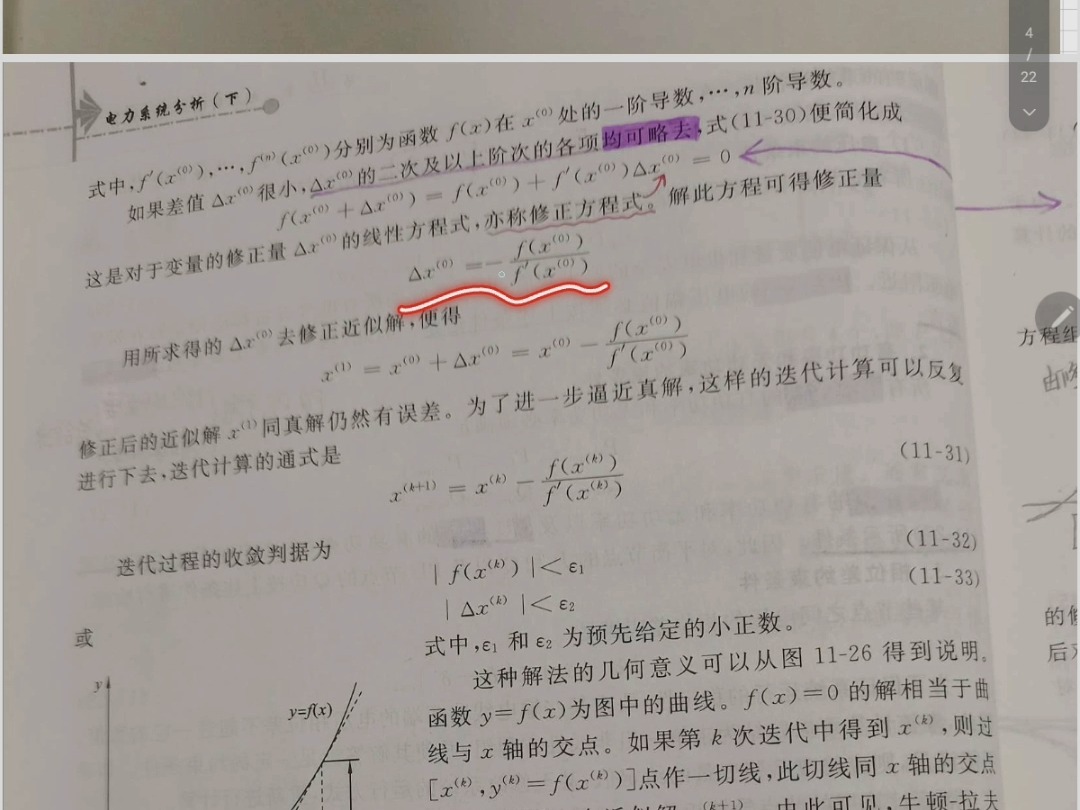 4
/
22
电力系统分析(下)
式中,f′(x⁽⁰⁾),⋯,f⁽ⁿ⁾(x⁽⁰⁾)分别为函数 f(x)在 x⁽⁰⁾处的一阶导数,⋯,n 阶导数。
如果差值 Δx⁽⁰⁾很小,Δx⁽⁰⁾的二次及以上阶次的各项均可略去,式(11-30)便简化成
f(x⁽⁰⁾ + Δx⁽⁰⁾) = f(x⁽⁰⁾) + f′(x⁽⁰⁾)Δx⁽⁰⁾ = 0
这是对于变量的修正量 Δx⁽⁰⁾的线性方程式,亦称修正方程式。解此方程可得修正量
Δx⁽⁰⁾ = − f(x⁽⁰⁾) / f′(x⁽⁰⁾)
用所求得的 Δx⁽⁰⁾去修正近似解,便得
x⁽¹⁾ = x⁽⁰⁾ + Δx⁽⁰⁾ = x⁽⁰⁾ − f(x⁽⁰⁾) / f′(x⁽⁰⁾)
修正后的近似解 x⁽¹⁾同真解仍然有误差。为了进一步逼近真解,这样的迭代计算可以反复
进行下去,迭代计算的通式是
x⁽ᵏ⁺¹⁾ = x⁽ᵏ⁾ − f(x⁽ᵏ⁾) / f′(x⁽ᵏ⁾) (11-31)
迭代过程的收敛判据为
| f(x⁽ᵏ⁾) |< ε₁ (11-32)
或
| Δx⁽ᵏ⁾ |< ε₂ (11-33)
式中,ε₁ 和 ε₂ 为预先给定的小正数。
这种解法的几何意义可以从图 11-26 得到说明。
函数 y=f(x)为图中的曲线。f(x)=0 的解相当于曲
线与 x 轴的交点。如果第 k 次迭代中得到 x⁽ᵏ⁾,则过
[x⁽ᵏ⁾,y⁽ᵏ⁾=f(x⁽ᵏ⁾)]点作一切线,此切线同 x 轴的交点
由此可见,牛顿-拉夫
y
y=f(x)
方程组
的修
后对